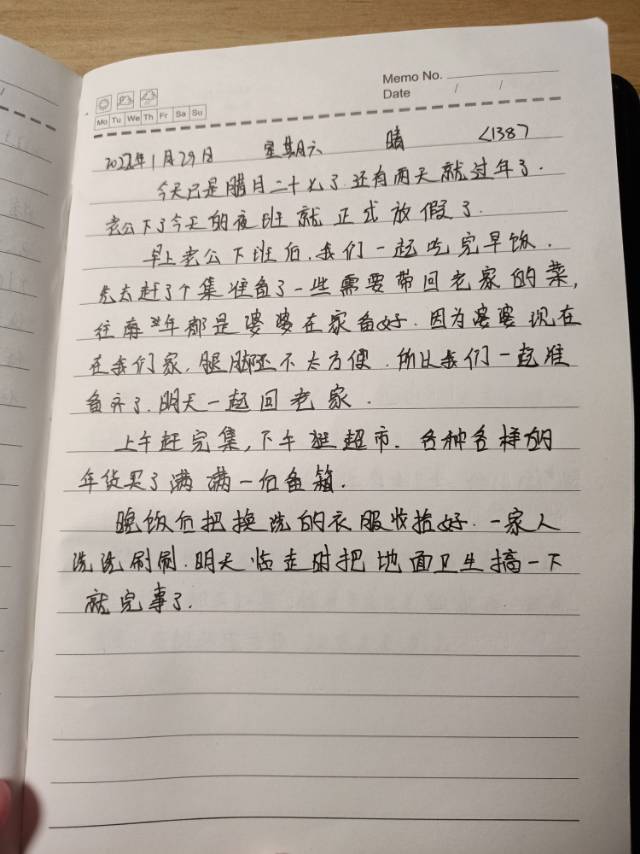 Memo No.
Date / /
Mo Tu We Th Fr Sa Su
2022年1月29日 星期六 晴 <138>
今天已是腊月二十七了.还有两天就过年了.
老公下了今天的夜班就正式放假了.
早上老公下班后,我们一起吃完早饭.
先去赶了个集准备了一些需要带回老家的菜,
往年都是婆婆在家备好.因为婆婆现在
在我们家,腿脚还不太方便.所以我们一起准
备齐了.明天一起回老家.
上午赶完集,下午逛超市.各种各样的
年货买了满满一后备箱.
晚饭后把换洗的衣服收拾好.一家人
洗洗刷刷.明天临走时把地面卫生搞一下
就完事了.